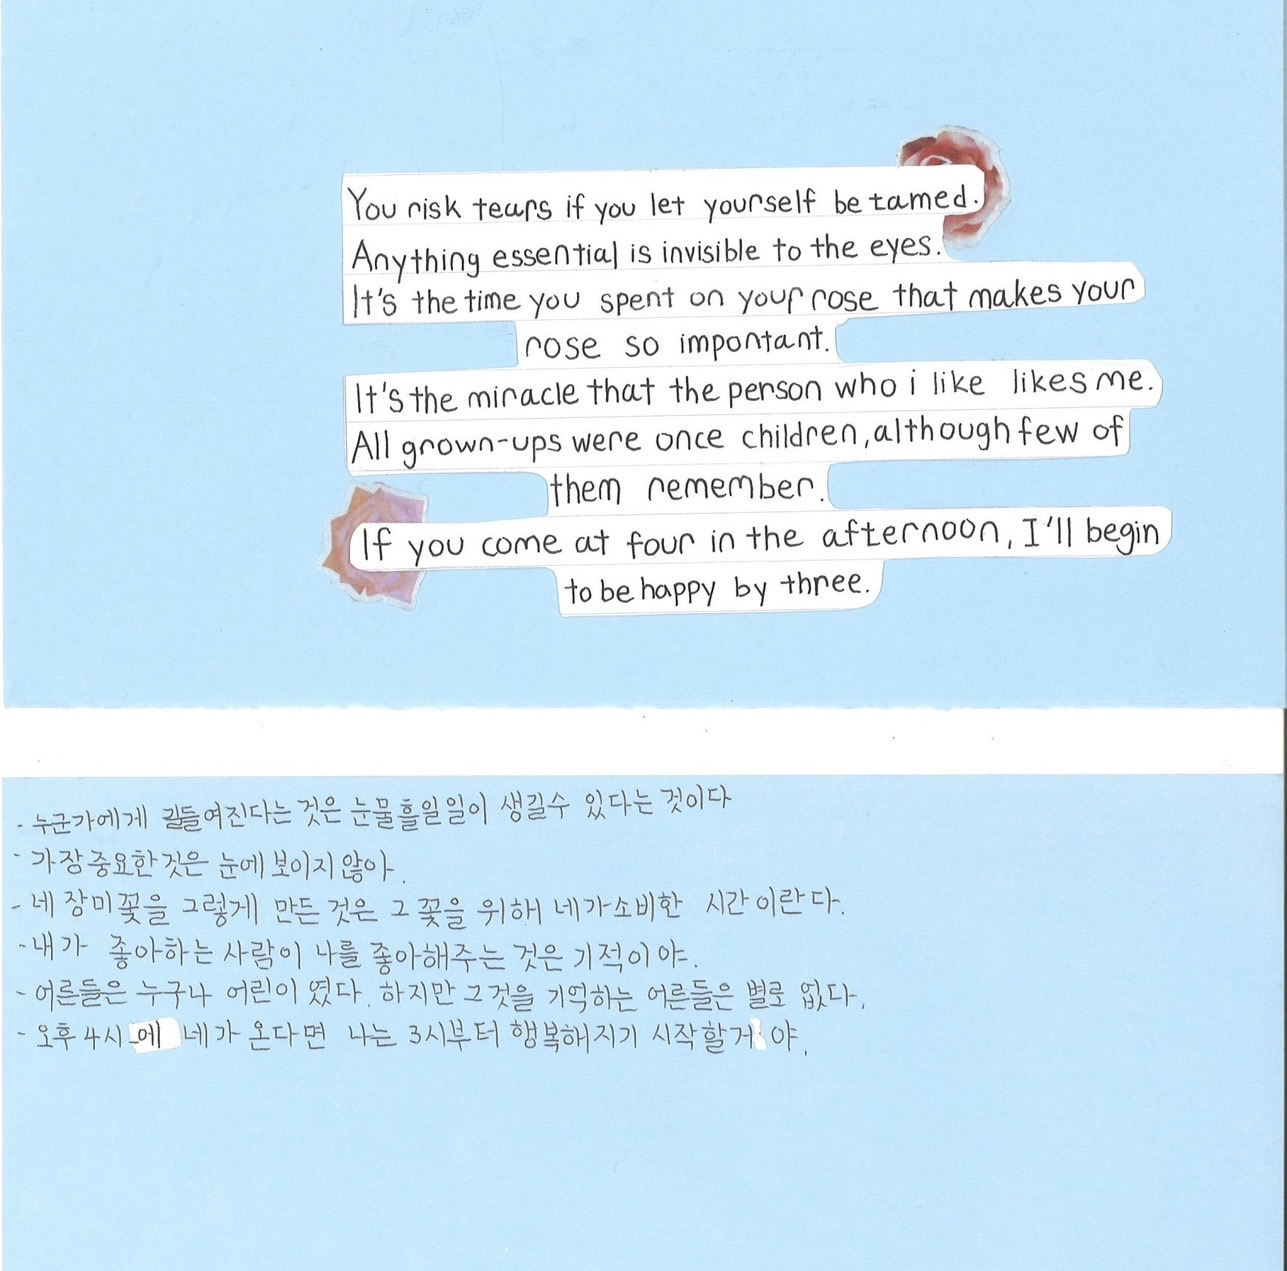 You risk tears if you let yourself be tamed.
Anything essential is invisible to the eyes.
It's the time you spent on your rose that makes your
rose so important.
It's the miracle that the person who i like likes me.
All grown-ups were once children, although few of
them remember.
If you come at four in the afternoon, I'll begin
to be happy by three.
- 누군가에게 길들여진다는 것은 눈물흘일일이 생길수 있다는 것이다
- 가장중요한것은 눈에보이지않아.
- 네 장미꽃을 그렇게 만든 것은 그 꽃을 위해 네가소비한 시간이란다.
- 내가 좋아하는 사람이 나를 좋아해주는 것은 기적이야.
- 어른들은 누구나 어린이 였다. 하지만 그것을 기억하는 어른들은 별로 없다.
- 오후 4시에 네가 온다면 나는 3시부터 행복해지기 시작할거야.